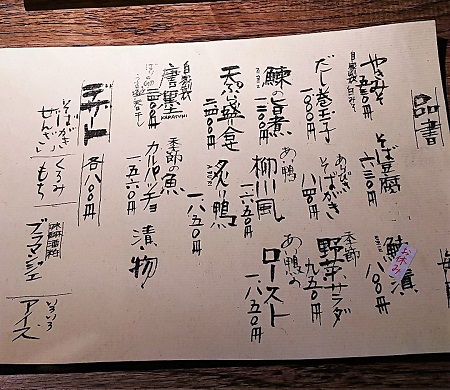 品書
やきみそ 五五〇円
自家製白みそ
そば豆腐 六三〇円
鯡漬 八〇〇円
お休み
だし巻玉子 一〇〇〇円
あらびき
そばがき 八八四〇円
季節
野菜サラダ 九五〇円
鰊の旨煮 一三〇〇円
あい鴨
柳川風 一六五〇円
あい鴨の
ロースト 一八五〇円
天ぷら盛合せ 二四〇〇円
炙り鴨 一八五〇円
自家製
唐墨
KARASUMI
季節の魚
カルパッチョ 一五六〇円
漬物
デザート 各八〇〇円
そばがき
ぜんざい
くるみ
もち
ブラマンジェ
いろいろ
アイス